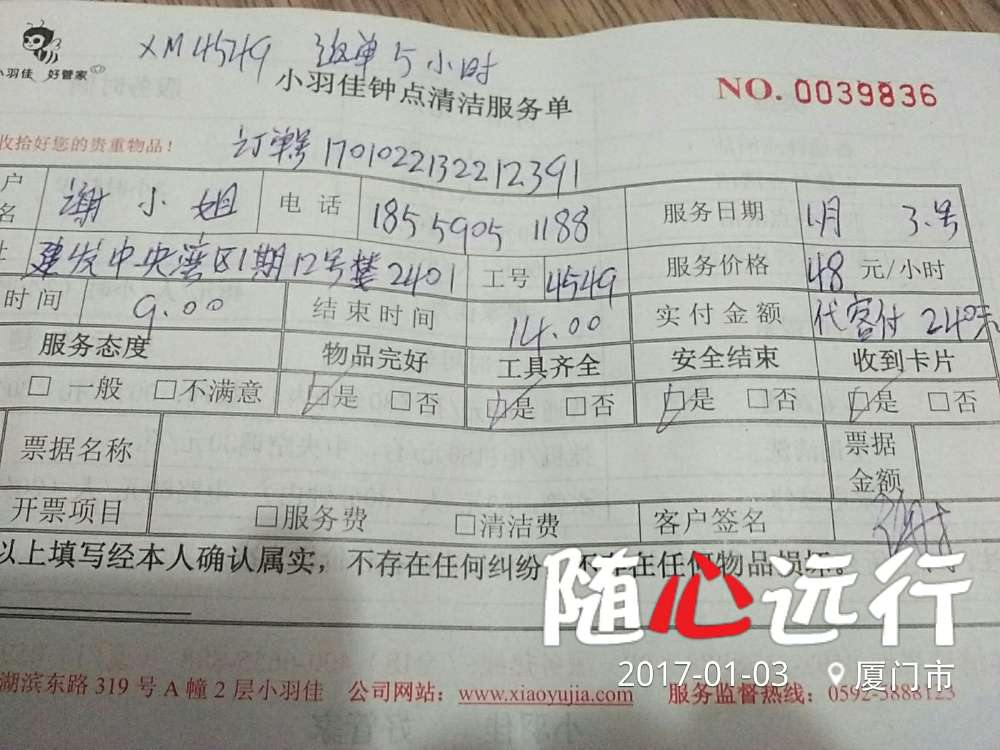 XM4549 派单5小时
小羽佳 好管家
小羽佳钟点清洁服务单 NO. 0039836
收拾好您的贵重物品！
订单号 17010221322212391
户名 谢小姐 电话 185 5905 1188 服务日期 1月 3号
建发中央湾区1期12号楼2401 工号 4549 服务价格 48 元/小时
时间 9.00 结束时间 14.00 实付金额 代客付 240元
服务态度 物品完好 工具齐全 安全结束 收到卡片
□ 一般 □不满意 ☑是 □否 ☑是 □否 ☑是 □否 ☑是 □否
票据名称 票据金额
开票项目 □服务费 □清洁费 客户签名
以上填写经本人确认属实，不存在任何纠纷 不存在任何物品损坏。
随心远行
2017-01-03 厦门市
湖滨东路 319 号 A 幢 2 层小羽佳 公司网站：www.xiaoyujia.com 服务监督热线：0592-3888123